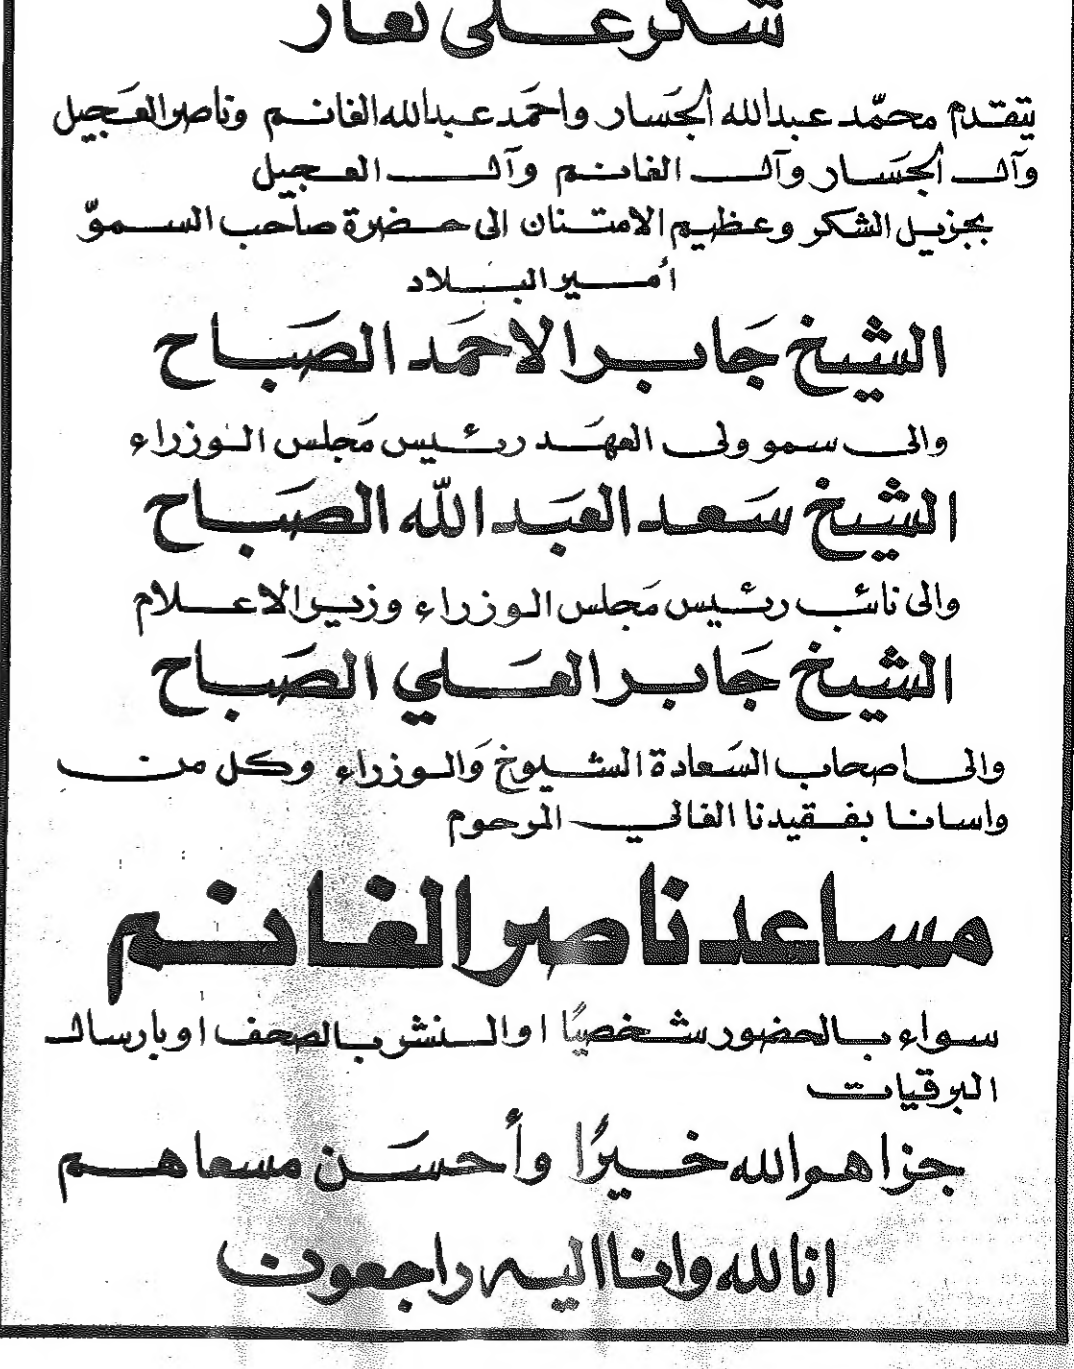 شكر على تعاز
يتقدم محمّد عبدالله الجَسار واحمَد عبدالله الغانم وناصر العجَيل
وآل الجَسَار وآل الغانم وآل العجيل
بجزيل الشكر وعظيم الامتنان الى حضرة صاحب السموّ
أمير البلاد
الشيخ جَابر الاحمَد الصَباح
والى سمو ولي العهَد رئيس مَجلس الوزراء
الشيخ سَعد العبَد اللّه الصَباح
والى نائب رئيس مَجلس الوزراء وزير الاعلام
الشيخ جَابر العَلي الصَباح
والى اصحاب السَعادة الشيوخ وَالوزراء وكل من
واسانا بفقيدنا الغالي المرحوم
مساعد ناصر الغانم
سواء بالحضور شخصيًا او النشر بالصحف او بارسال
البرقيات
جزاهم الله خيرًا وأحسَن مسعاهم
انا لله وانا اليه راجعون